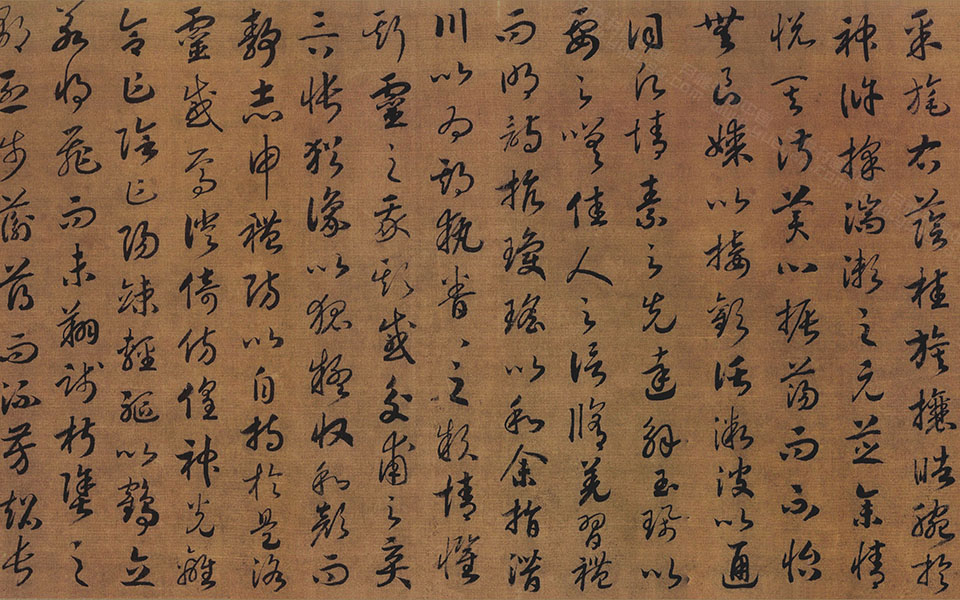 采旄右蔭桂旗攘皓腕於
神滸採湍瀨之元芝余情
悅其淑美心振蕩而不怡
無良媒以接歡託微波以通
詞願情素之先達解玉珮以
要之嗟佳人之信脩羌習禮
而明詩抗瓊瑤以和余指潛
川以為期執眷々之款情懼
斯靈之我欺感交甫之棄
言悵猶豫以狐疑收和顏而
靜志申禮防以自持於是洛
靈感焉徙倚彷徨神光離
合乍陰乍陽竦輕軀以鶴立
若將飛而未翔踐椒塗之
郁烈步蘅薄而流芳超長